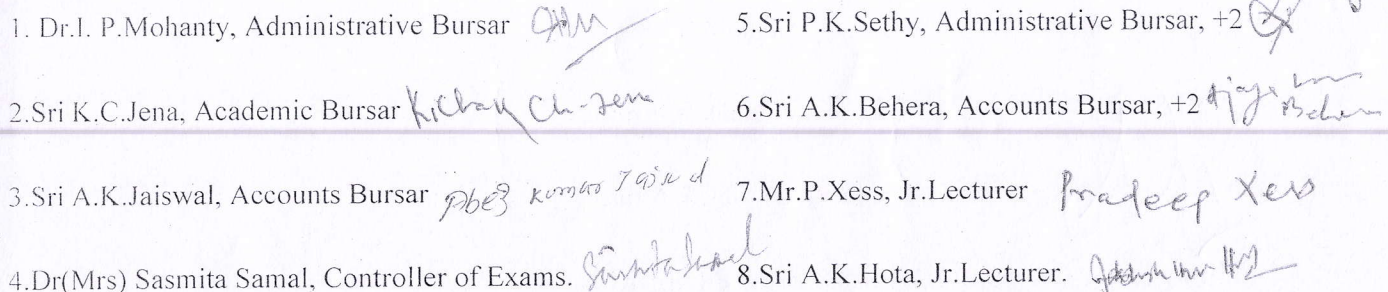 1. Dr.I. P.Mohanty, Administrative Bursar
2.Sri K.C.Jena, Academic Bursar Ch. Jena
3.Sri A.K.Jaiswal, Accounts Bursar Kumar
4.Dr(Mrs) Sasmita Samal, Controller of Exams. Sasmita Samal
5.Sri P.K.Sethy, Administrative Bursar, +2
6.Sri A.K.Behera, Accounts Bursar, +2 Behera
7.Mr.P.Xess, Jr.Lecturer Pradeep Xess
8.Sri A.K.Hota, Jr.Lecturer.